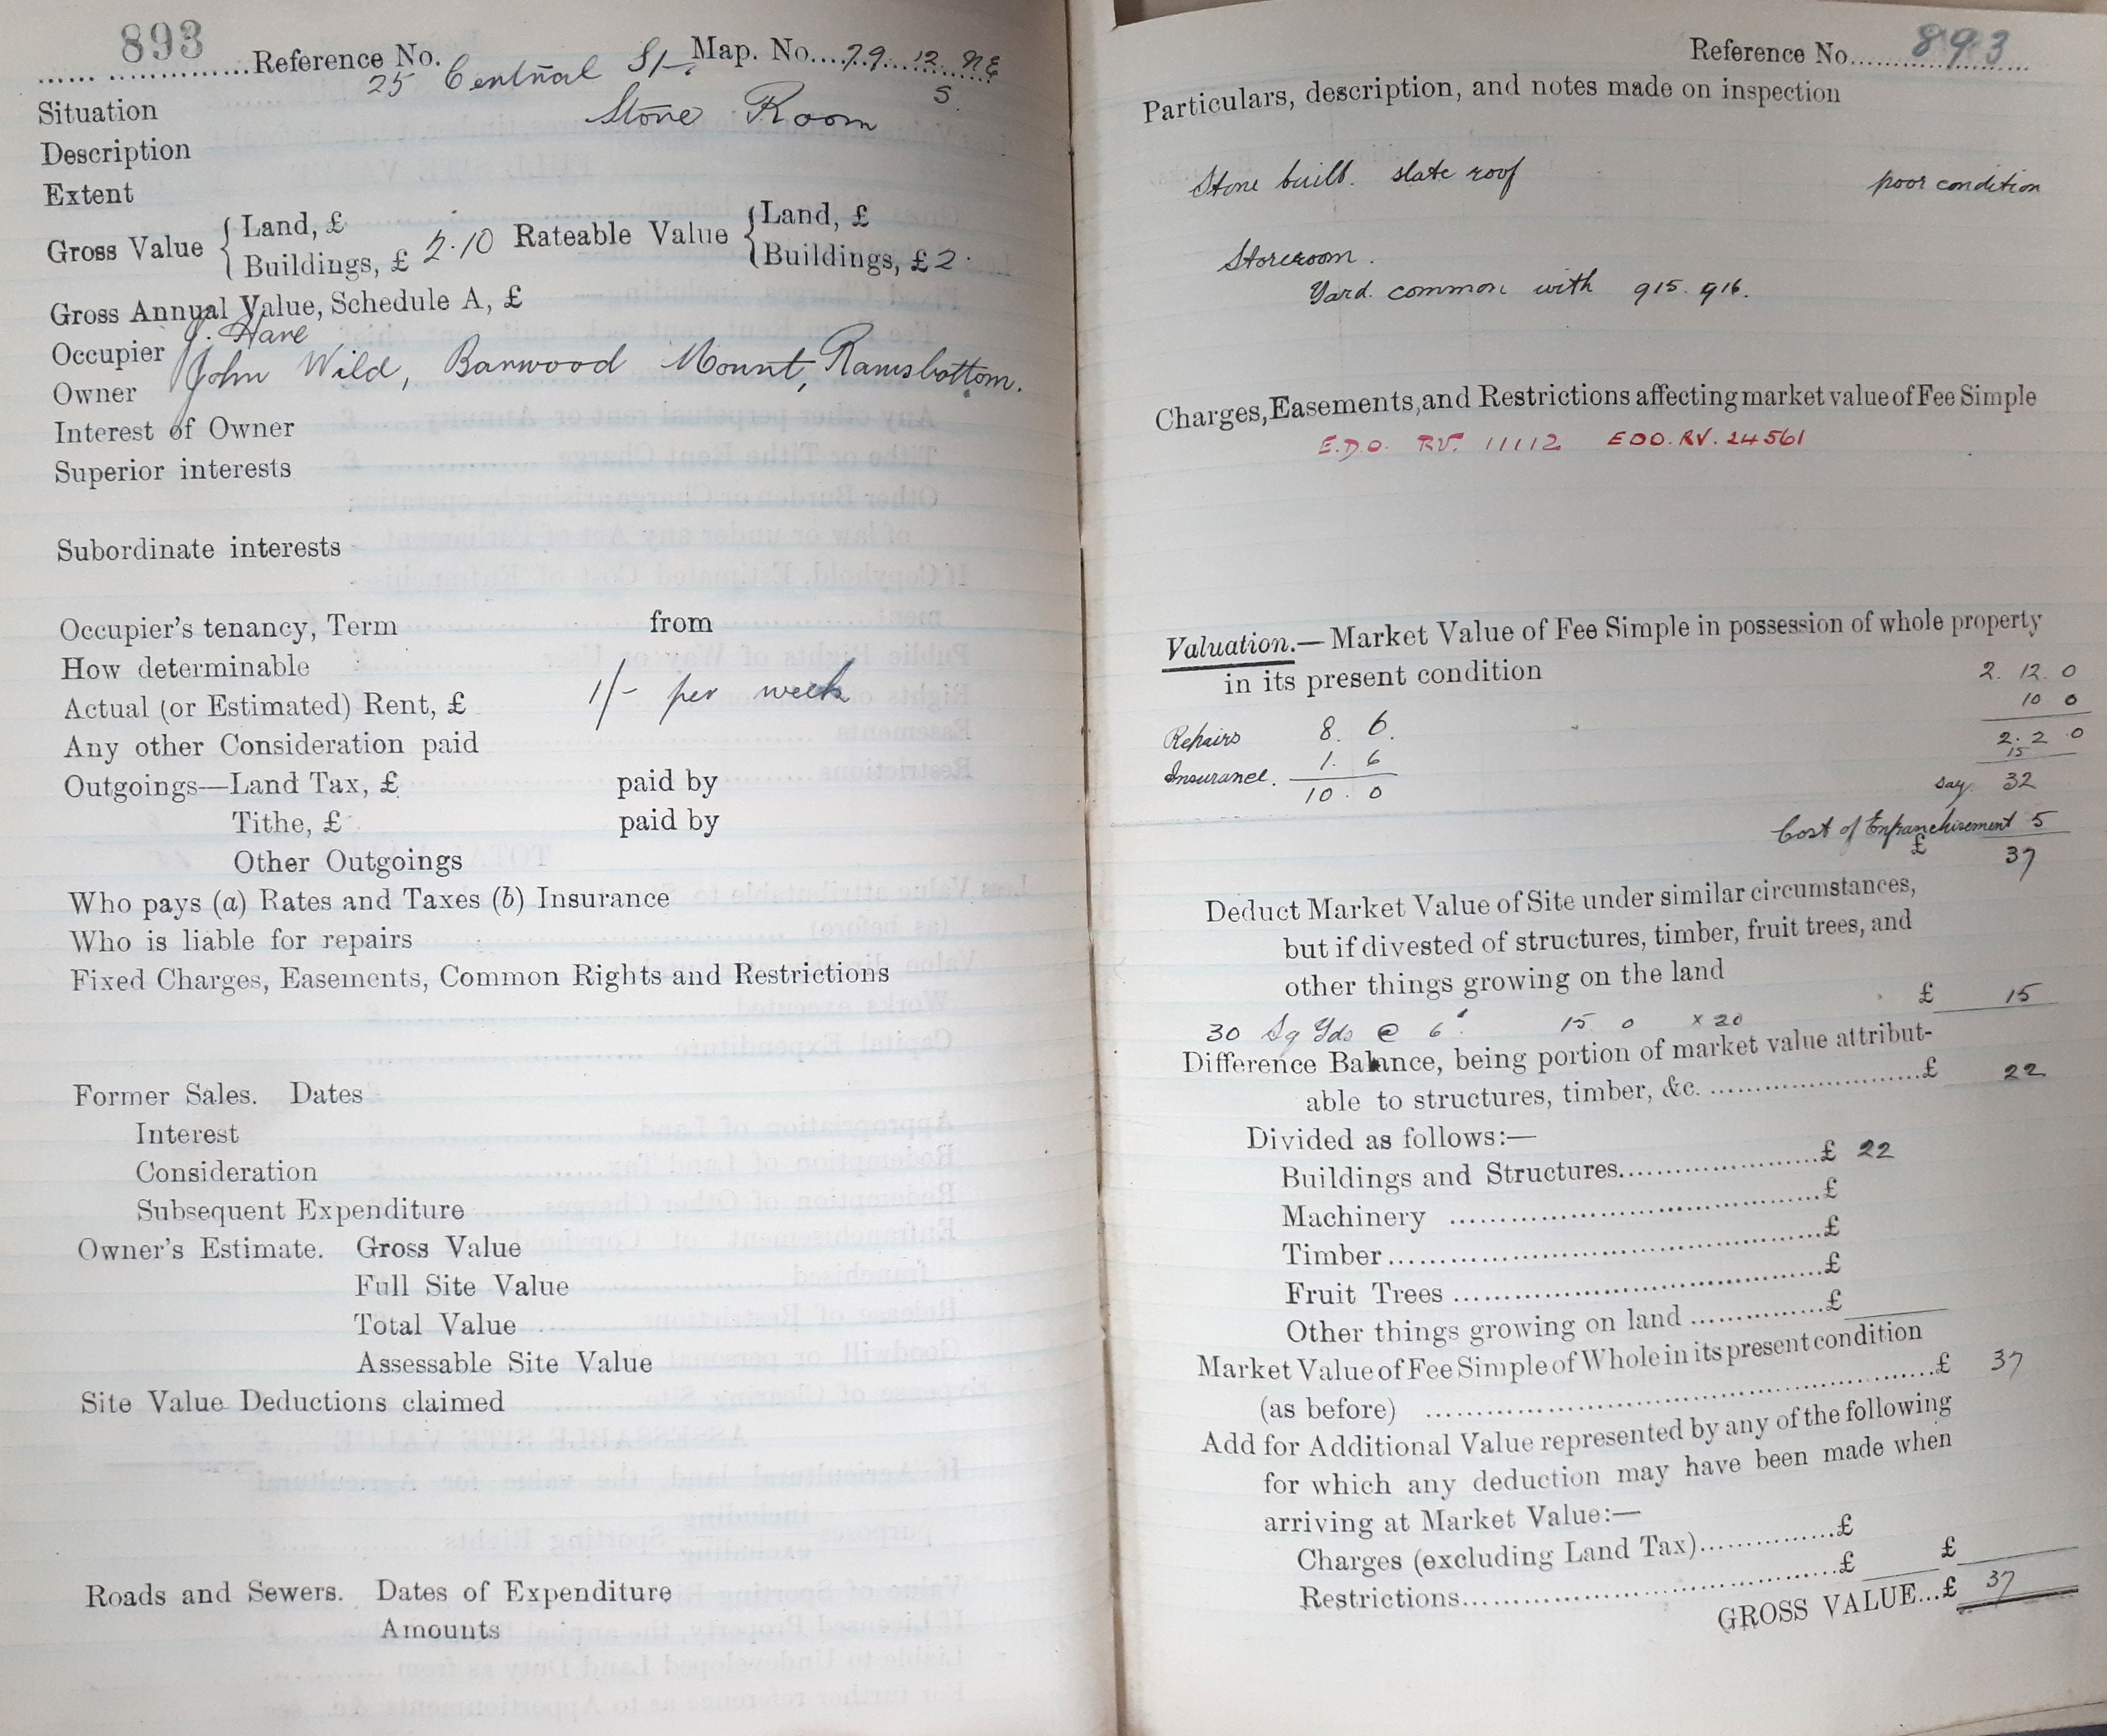 893 Reference No. Map. No. 79. 12. NE
S.
Situation 25 Central St.
Description Store Room
Extent
Gross Value { Land, £ Rateable Value { Land, £
Buildings, £ 2.10 Buildings, £ 2.
Gross Annual Value, Schedule A, £
Occupier J. Hare
Owner John Wild, Barwood Mount, Ramsbottom.
Interest of Owner
Superior interests
Subordinate interests
Occupier's tenancy, Term from
How determinable
Actual (or Estimated) Rent, £ 1/- per week
Any other Consideration paid
Outgoings—Land Tax, £ paid by
Tithe, £ paid by
Other Outgoings
Who pays (a) Rates and Taxes (b) Insurance
Who is liable for repairs
Fixed Charges, Easements, Common Rights and Restrictions
Former Sales. Dates
Interest
Consideration
Subsequent Expenditure
Owner's Estimate. Gross Value
Full Site Value
Total Value
Assessable Site Value
Site Value Deductions claimed
Roads and Sewers. Dates of Expenditure
Amounts
Reference No. 893
Particulars, description, and notes made on inspection
Stone built. slate roof poor condition
Storeroom.
Yard common with 915. 916.
Charges, Easements, and Restrictions affecting market value of Fee Simple
E.D.O. RV. 11112 EDO. RV. 24561
Valuation.—Market Value of Fee Simple in possession of whole property
in its present condition 2. 12. 0
10 0
Repairs 8. 6. 2. 2. 0
Insurance. 1. 6 15
10. 0 say 32
Cost of Enfranchisement 5
£ 37
Deduct Market Value of Site under similar circumstances,
but if divested of structures, timber, fruit trees, and
other things growing on the land
£ 15
30 Sq Yds @ 6d 15 0 x 20
Difference Balance, being portion of market value attribut-
able to structures, timber, &c. £ 22
Divided as follows:—
Buildings and Structures £ 22
Machinery £
Timber £
Fruit Trees £
Other things growing on land £
Market Value of Fee Simple of Whole in its present condition
(as before) £ 37
Add for Additional Value represented by any of the following
for which any deduction may have been made when
arriving at Market Value:—
Charges (excluding Land Tax) £
Restrictions £ £
GROSS VALUE...£ 37